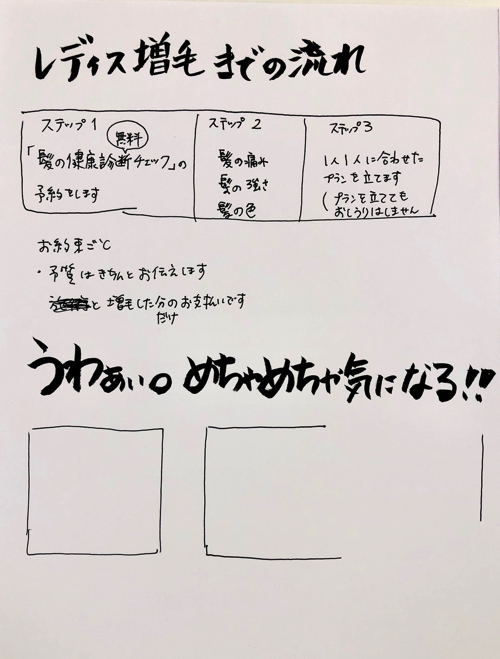 レディス増毛までの流れ
ステップ1
無料
「髪の健康診断チェック」の
予約をします
ステップ2
髪の痛み
髪の強さ
髪の色
ステップ3
1人1人に合わせた
プランを立てます
(プランを立てても
おしうりはしません
お約束ごと
・予算はきちんとお伝えします
と増毛した分のお支払いです
だけ
うわぁい。めちゃめちゃ気になる!!